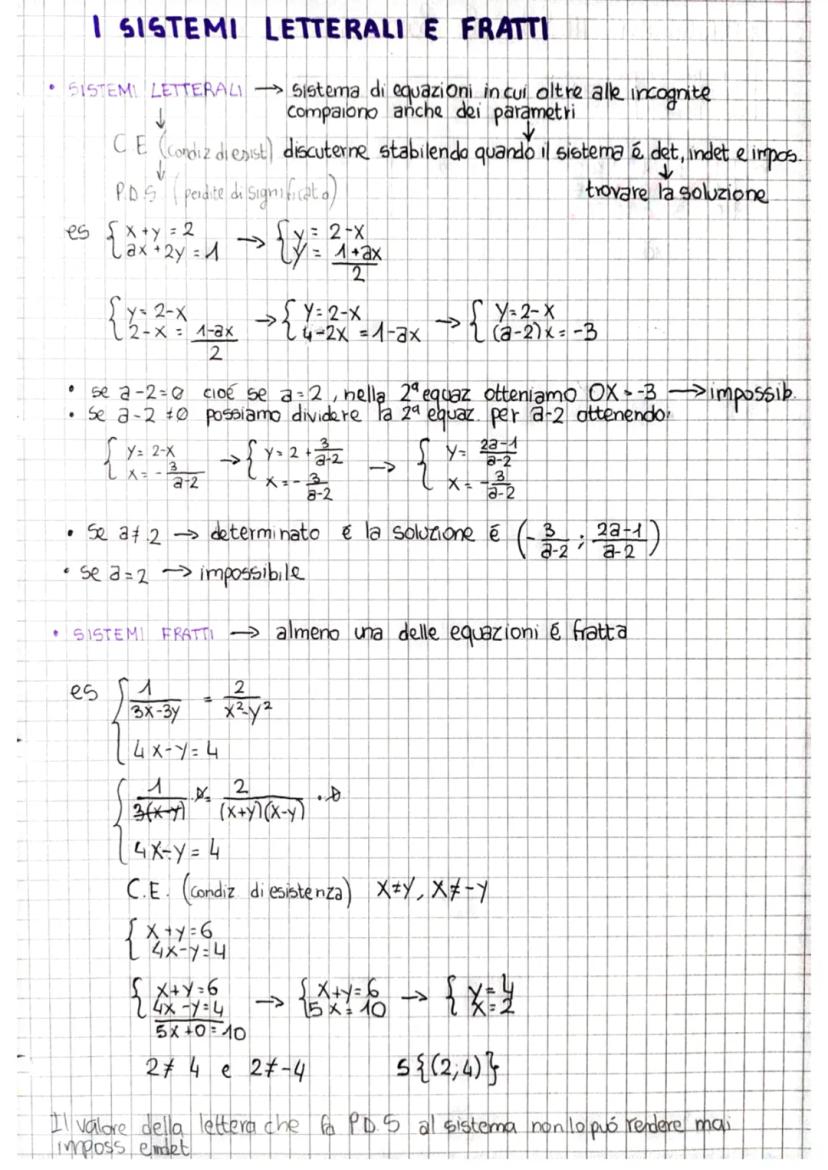 I SISTEMI LETTERALI E FRATTI
• SISTEMI LETTERALI → sistema di equazioni in cui oltre alle incognite
compaiono anche dei parametri
↓ ↓
C E (condiz di esist) discuterne stabilendo quando il sistema é det, indet e impos.
↓ ↓
P.D.S (perdite di significato) trovare la soluzione
es { x+y=2 ; ax+2y=1 → { y=2-x ; y=(1+ax)/2
{ y=2-x ; 2-x=(1-ax)/2 → { y=2-x ; 4-2x=1-ax → { y=2-x ; (a-2)x=-3
• se a-2=0 cioé se a=2, nella 2ª equaz otteniamo 0X=-3 → impossib.
• Se a-2≠0 possiamo dividere la 2ª equaz. per a-2 ottenendo:
{ y=2-x ; x=-3/(a-2) → { y=2+3/(a-2) ; x=-3/(a-2) → { y=(2a-1)/(a-2) ; x=-3/(a-2)
• Se a≠2 → determinato é la soluzione é (-3/(a-2) ; (2a-1)/(a-2))
• se a=2 → impossibile
• SISTEMI FRATTI → almeno una delle equazioni é fratta
es { 1/(3x-3y) = 2/(x²-y²)
4x-y=4
{ 1/(3(x-y)) = 2/((x+y)(x-y))
4x-y=4
C.E. (condiz di esistenza) x≠y, x≠-y
{ x+y=6
4x-y=4
{ x+y=6 ; 4x-y=4 → { x+y=6 ; 5x=10 → { y=4 ; x=2
5x+0=10
2≠4 e 2≠-4 S{(2;4)}
Il valore della lettera che fa P.D.S al sistema non lo può rendere mai
imposs e indet